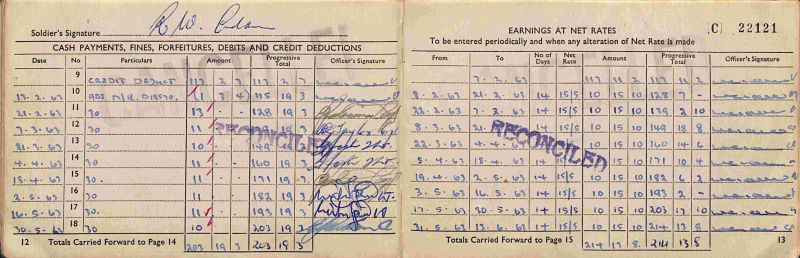 Soldier's Signature R.W.
CASH PAYMENTS, FINES, FORFEITURES, DEBITS AND CREDIT DEDUCTIONS
Date No Particulars Amount Progressive Total Officer's Signature
9 CREDIT DEDUCT 117 2 7 117 2 7
13.2.63 10 (1 3 4) 115 19 3
21.2.63 11 30 13 128 19 3
7.3.63 12 30 11
21.3.63 13 30 10 149 19 3
4.4.63 14 30 11 160 19 3
18.4.63 15 30 11 171 19 3
2.5.63 16 30 11 182 19 3
16.5.63 17 30 11 193 19 3
30.5.63 18 30 10 203 19 3
RECONCILED
12 Totals Carried Forward to Page 14 203 19 3 203 19 3
EARNINGS AT NET RATES (C) 22121
To be entered periodically and when any alteration of Net Rate is made
From To No of Days Net Rate Amount Progressive Total Officer's Signature
7.2.63 117 11 2 117 11 2
8.2.63 21.2.63 14 15/5 10 15 10 128 7 -
22.2.63 7.3.63 14 15/5 10 15 10 139 2 10
8.3.63 21.3.63 14 15/5 10 15 10 149 18 8
22.3.63 4.4.63 14 15/5 10 15 10 160 14 6
5.4.63 18.4.63 14 15/5 10 15 10 171 10 4
19.4.63 2.5.63 14 15/5 10 15 10 182 6 2
3.5.63 16.5.63 14 15/5 10 15 10 193 2 -
17.5.63 30.5.63 14 15/5 10 15 10 203 17 10
31.5.63 13.6.63 14 15/5 10 15 10 214 13 8
RECONCILED
Totals Carried Forward to Page 15 214 13 8 214 13 8 13